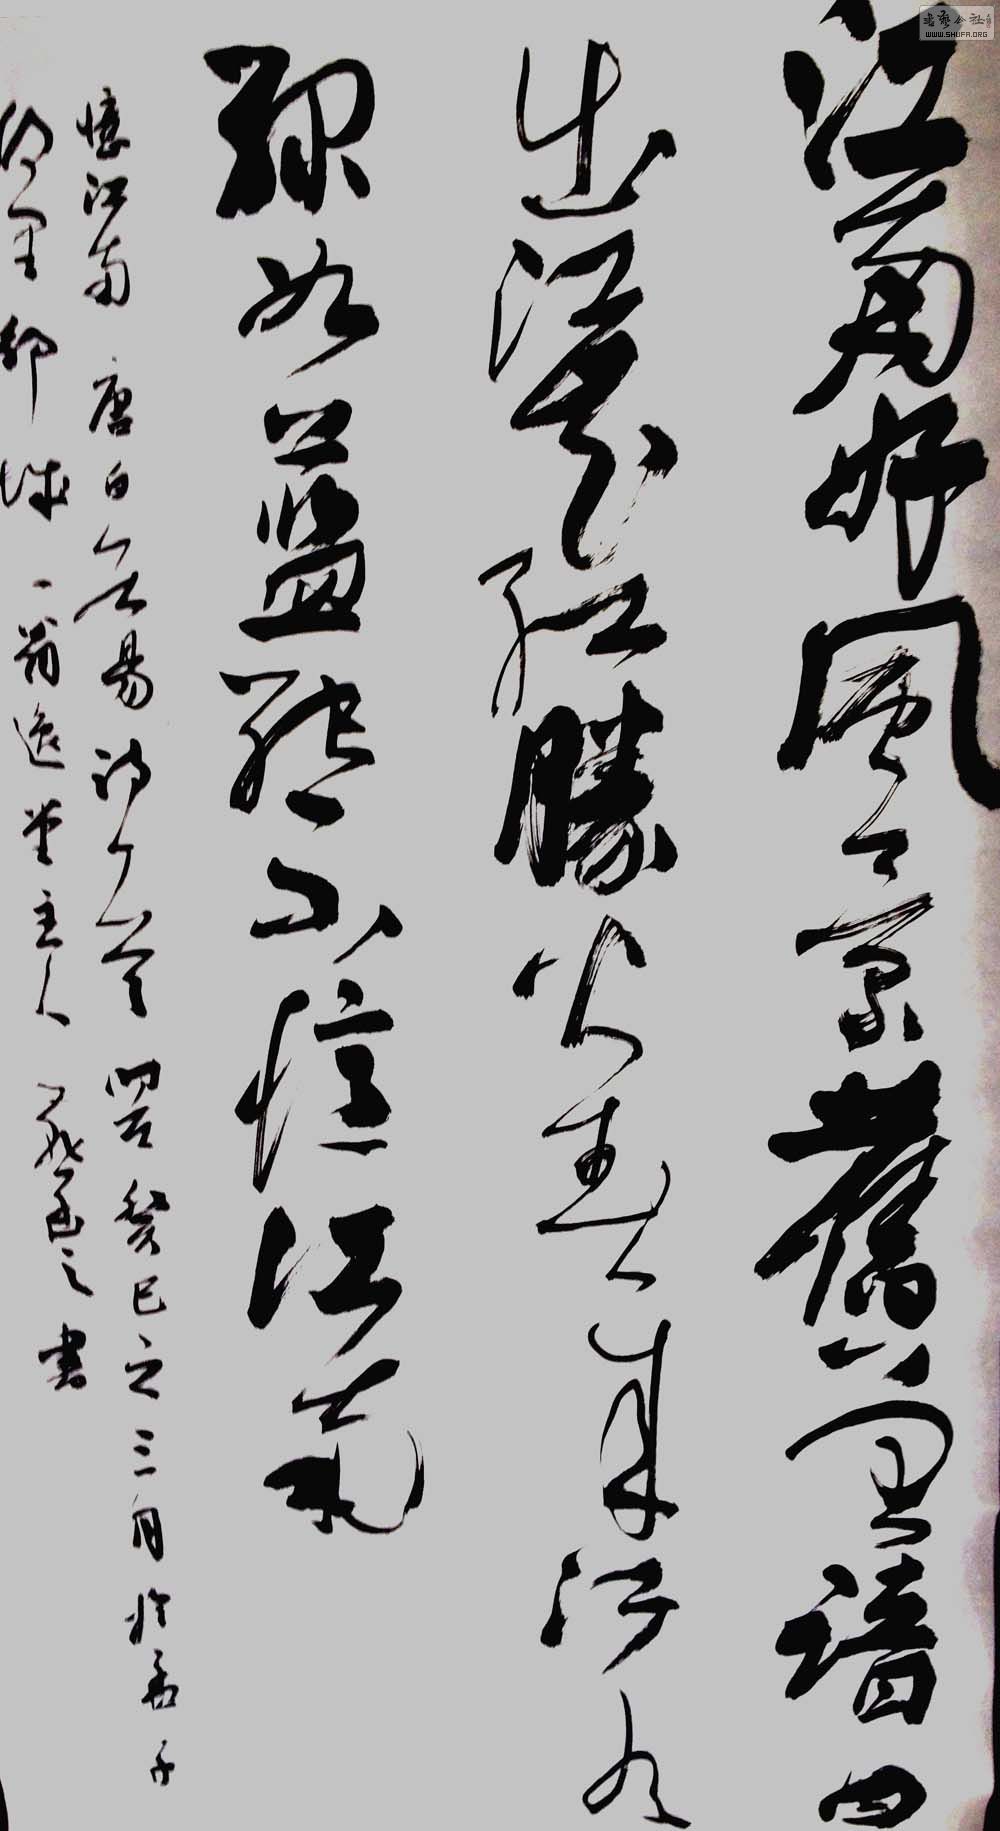 江南好風景舊曾諳日
出江花紅勝火春來江水
綠如藍能不憶江南
憶江南 唐白居易詩 首 癸巳之三月於孟子
故里邹城 逸堂主人 之書
書藝公社
WWW.SHUFA.ORG